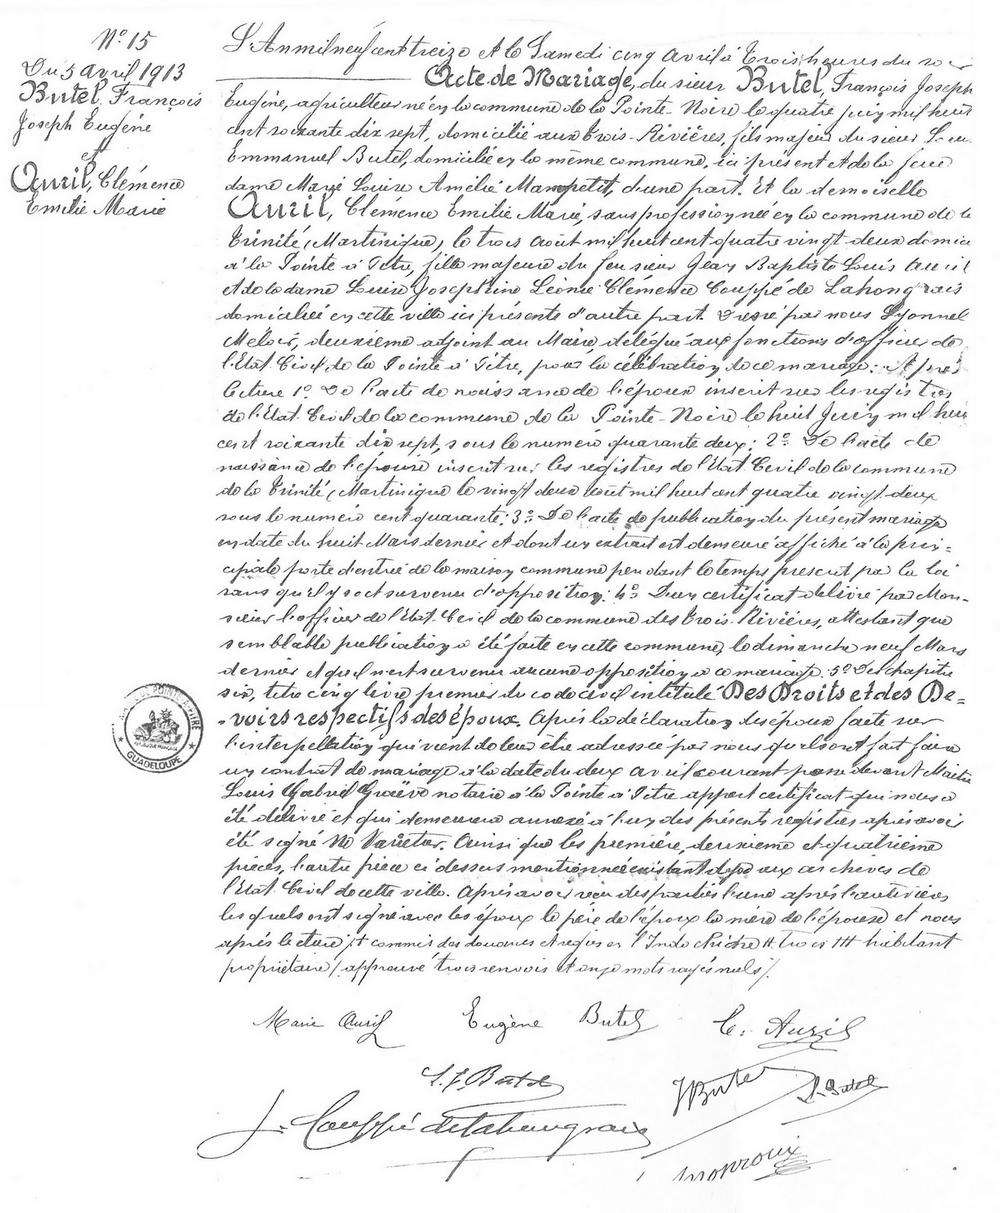 N° 15
Du 5 avril 1913
Butel, François
Joseph Eugène
et
Avril, Clémence
Emilie Marie
L'An mil neuf cent treize et le Samedi cinq avril à trois heures du soir
Acte de Mariage, du sieur Butel, François Joseph
Eugène, agriculteur né en la commune de la Pointe-Noire le quatre juin mil huit
cent soixante dix sept, domicilié aux Trois-Rivières, fils majeur du sieur
Emmanuel Butel, domicilié en la même commune, ici présent et de la feue
dame Marie Louise Amélie Mampetit, d'une part. Et la demoiselle
Avril, Clémence Emilie Marie, sans profession née en la commune de la
Trinité (Martinique), le trois août mil huit cent quatre vingt deux domici
à la Pointe à Pitre, fille majeure du feu sieur Jean Baptiste Louis Avril
et de la dame Louise Joséphine Léonie Clémence Couppé de Lahongrais
domiciliée en cette ville ici présente d'autre part. Dressé par nous Lyonnel
Méloir, deuxième adjoint au Maire, délégué aux fonctions d'officier de
l'Etat Civil de la Pointe à Pitre, pour la célébration de ce mariage: Après
lecture 1° De l'acte de naissance de l'époux inscrit sur les registres
de l'Etat Civil de la commune de la Pointe-Noire le huit Juin mil huit
cent soixante dix sept, sous le numéro quarante deux; 2° De l'acte de
naissance de l'épouse inscrit sur les registres de l'Etat Civil de la commune
de la Trinité (Martinique le vingt deux août mil huit cent quatre vingt deux
sous le numéro cent quarante; 3° De l'acte de publication du présent mariage
en date du huit Mars dernier et dont un extrait est demeuré affiché à la prin-
cipale porte d'entrée de la maison commune pendant le temps prescrit par la loi
sans qu'il y soit survenu d'opposition; 4° D'un certificat délivré par Mon-
sieur l'officier de l'Etat Civil de la commune des Trois-Rivières, attestant que
semblable publication a été faite en cette commune, le dimanche neuf Mars
dernier et qu'il n'est survenu aucune opposition à ce mariage. 5° Du chapitre
six, titre cinq livre premier du code civil intitulé Des Droits et des De-
voirs respectifs des époux. Après la déclaration des époux faite sur
l'interpellation qui vient de leur être adressée par nous qu'ils ont fait faire
un contrat de mariage à la date du deux avril courant passé devant Maître
Louis Gabriel Graëve notaire à la Pointe à Pitre appert certificat qui nous a
été délivré et qui demeurera annexé à l'un des présents registres après avoir
été signé Ne Varietur. Ainsi que les première, deuxième et quatrième
pièces, l'autre pièce ci dessus mentionnée existant déjà aux archives de
l'Etat Civil de cette ville. Après avoir
lesquels ont signé avec les époux le père de l'époux la mère de l'épouse et nous
après lecture commis des douanes et régies en l'Indo Chine habitant
propriétaire / approuvé trois renvois et onze mots rayés nuls /.
Marie Avril Eugène Butel C. Avril
Butel Butel Butel
Couppé de Lahongrais
POINTE A PITRE
GUADELOUPE